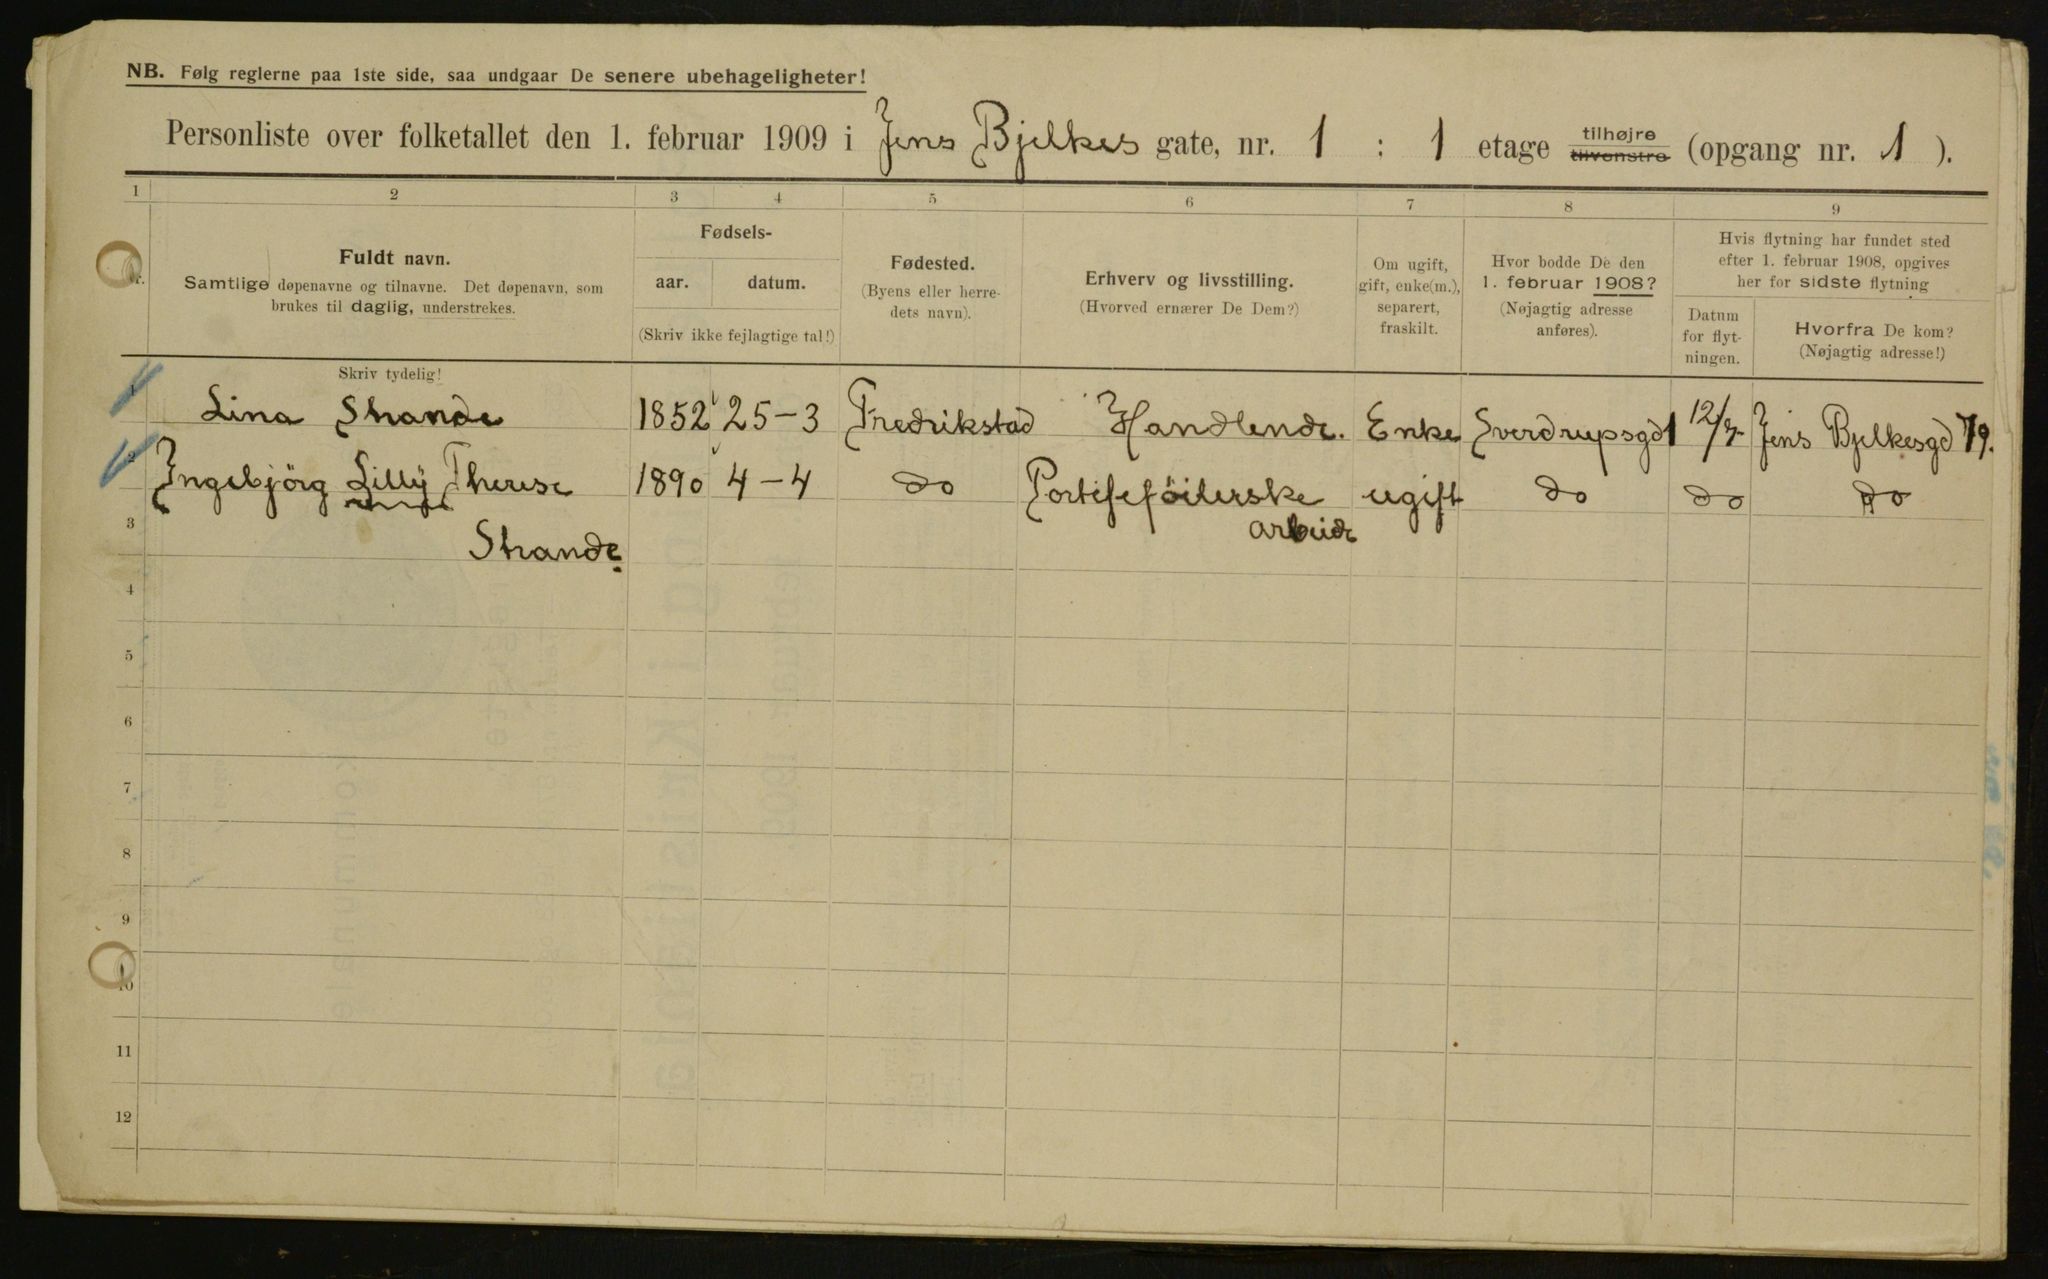 NB. Følg reglerne paa 1ste side, saa undgaar De senere ubehageligheter!
Personliste over folketallet den 1. februar 1909 i Jens Bjelkes gate, nr. 1 : 1 etage tilhøjre tilvenstre (opgang nr. 1 ).
1 2 3 4 5 6 7 8 9
Nr.
Fuldt navn.
Samtlige døpenavne og tilnavne. Det døpenavn, som
brukes til daglig, understrekes.
Skriv tydelig!
Fødsels-
aar. datum.
(Skriv ikke fejlagtige tal!)
Fødested.
(Byens eller herre-
dets navn).
Erhverv og livsstilling.
(Hvorved ernærer De Dem?)
Om ugift,
gift, enke(m.),
separert,
fraskilt.
Hvor bodde De den
1. februar 1908?
(Nøjagtig adresse
anføres).
Hvis flytning har fundet sted
efter 1. februar 1908, opgives
her for sidste flytning
Datum
for flyt-
ningen.
Hvorfra De kom?
(Nøjagtig adresse!)
1 Lina Strande 1852 25-3 Fredrikstad Handlende. Enke Sverdrupsgd 1 Jens Bjelkesgd 79.
2 Ingebjörg Lilly Therese 1890 4-4 do ugift do do do
arbeide
3 Strande
4
5
6
7
8
9
10
11
12